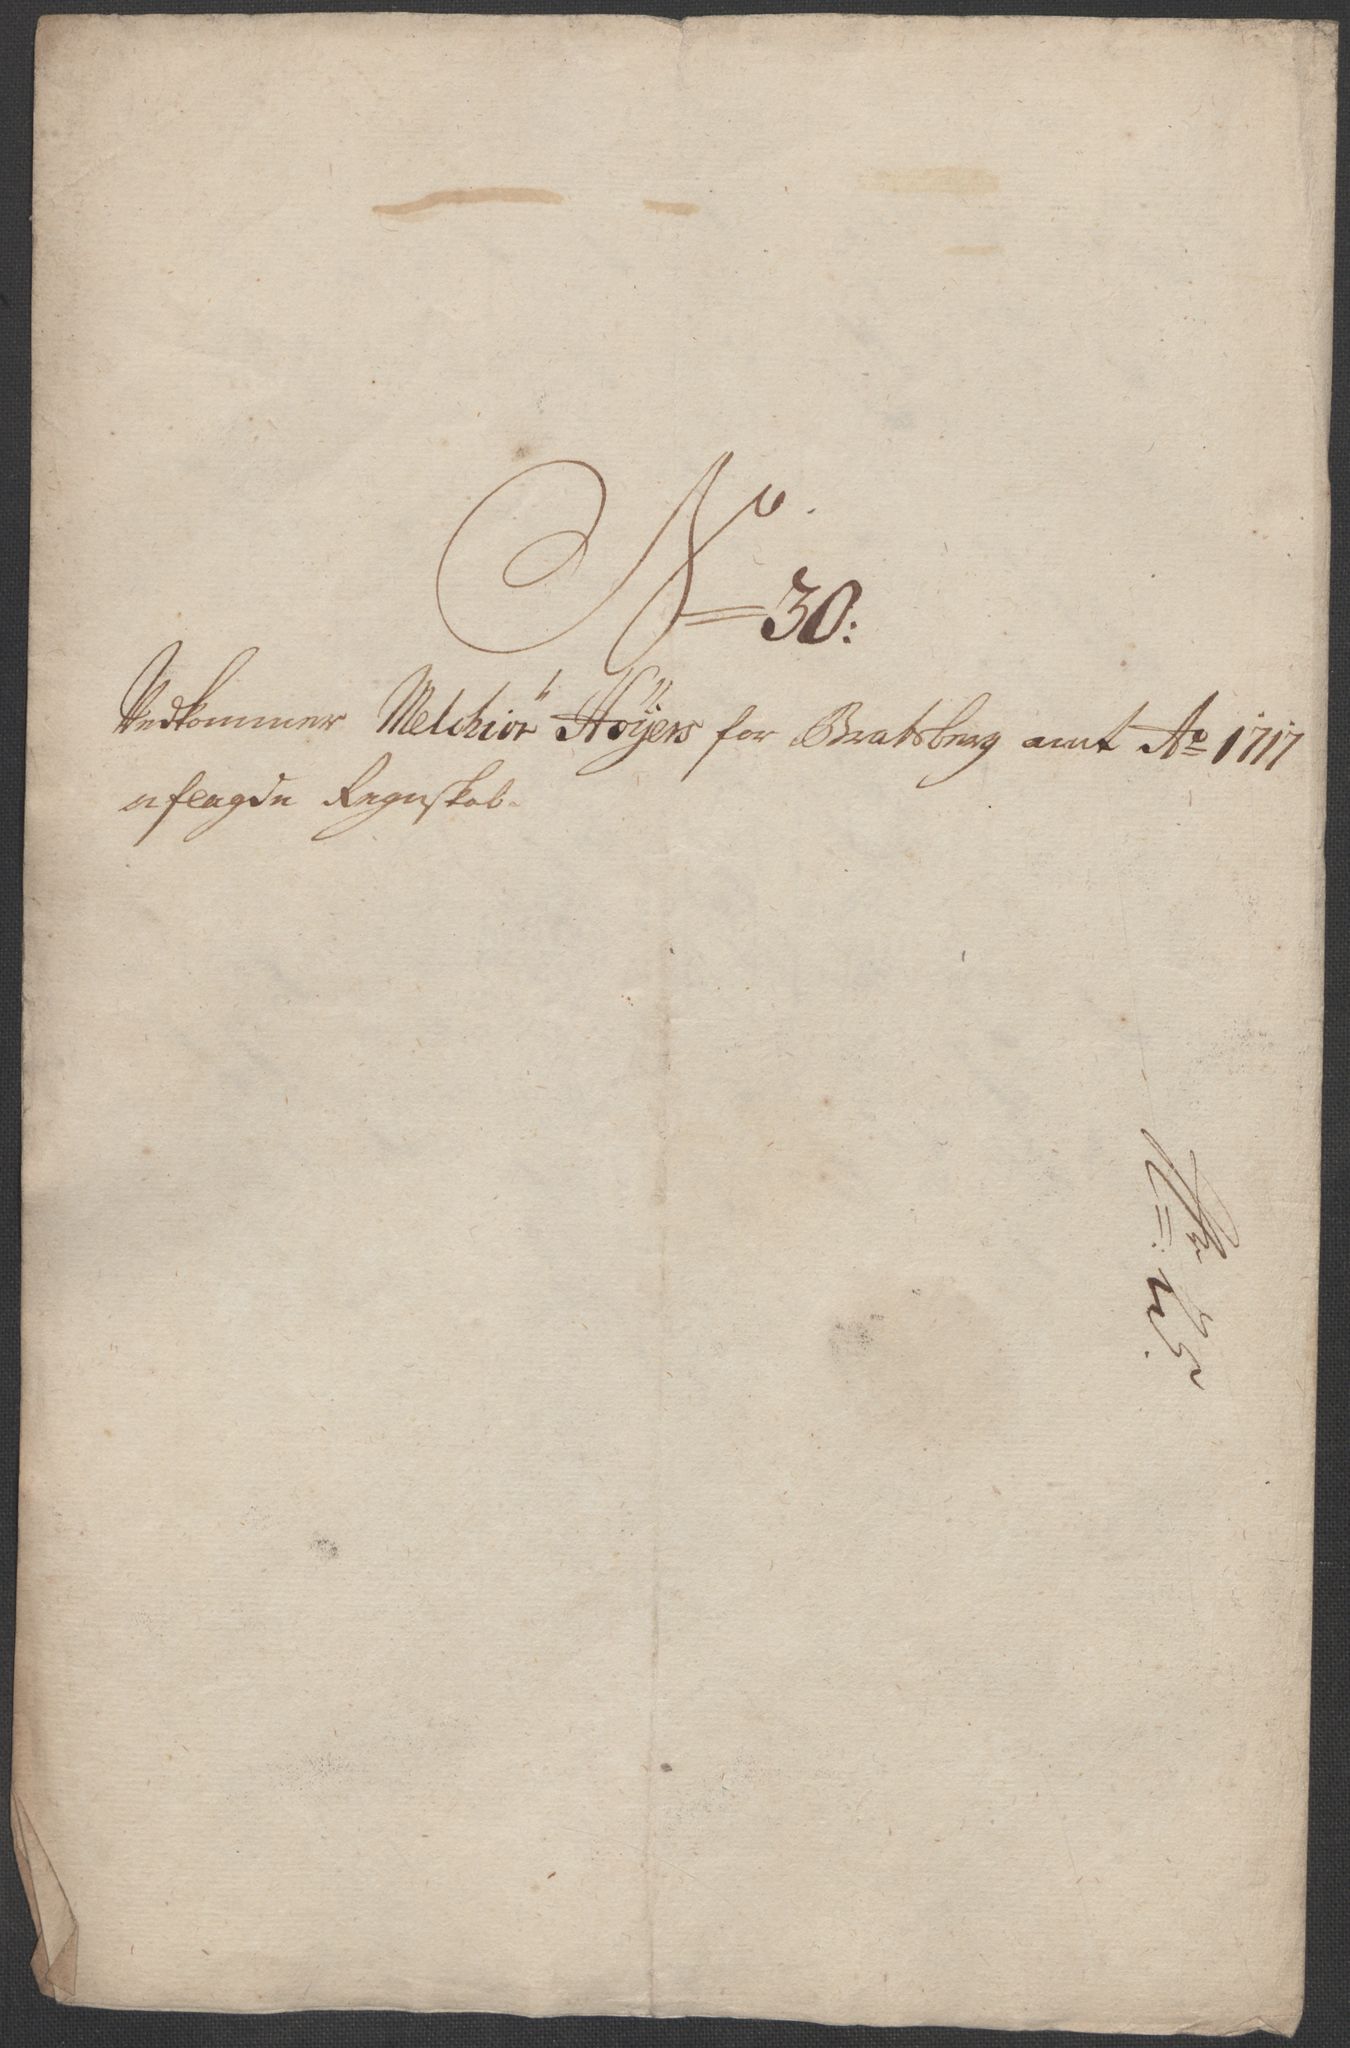 No.
30:
Vedkommer Melchior Høÿers for Bratsberg amt Ao 1717
aflagde Regnskab.